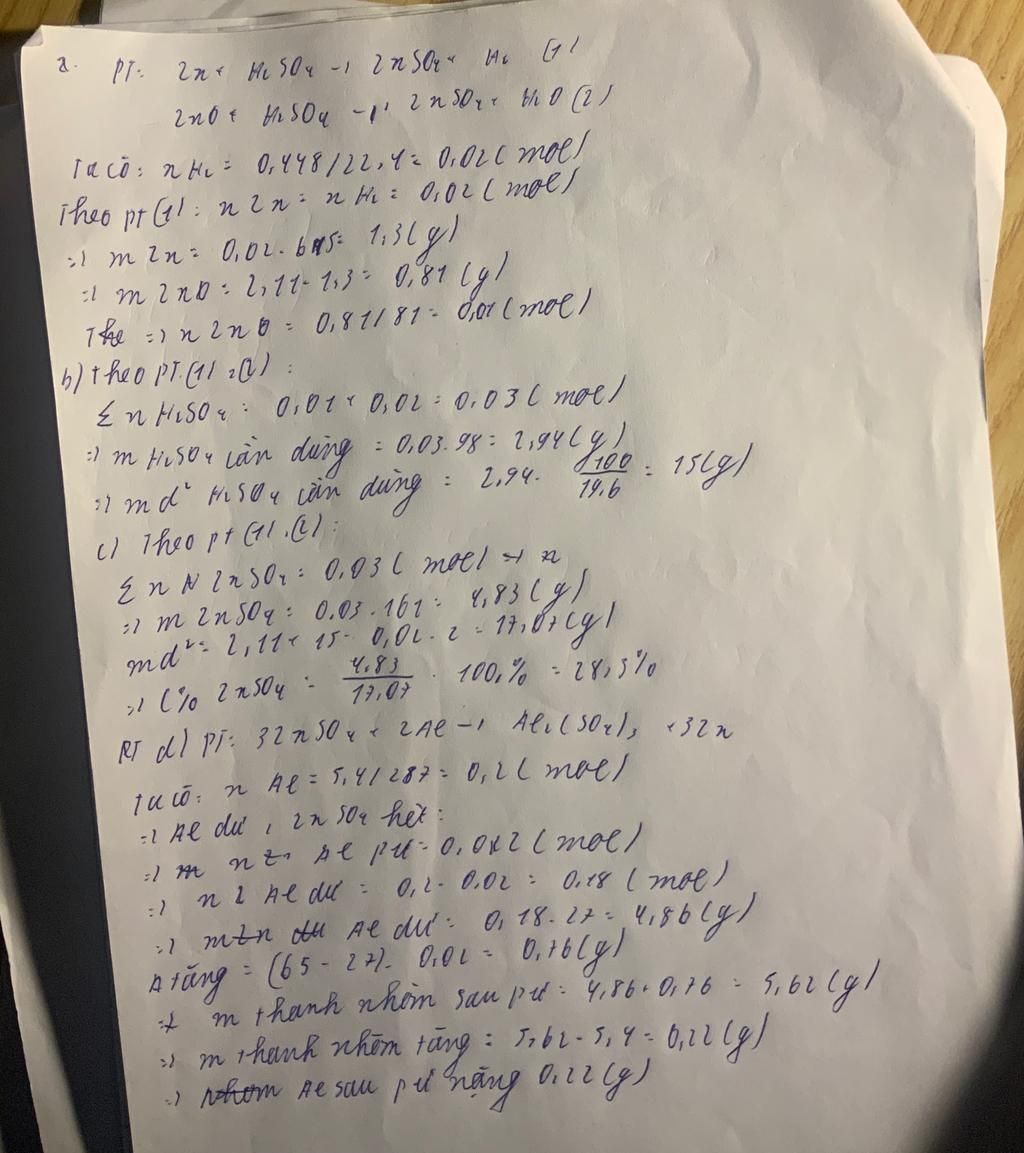 a. PT: Zn + H₂SO₄ → ZnSO₄ + H₂ (1)
ZnO + H₂SO₄ → ZnSO₄ + H₂O (2)
Ta có: nH₂ = 0,448/22,4 = 0,02 (mol)
Theo pt (1): nZn = nH₂ = 0,02 (mol)
=> mZn = 0,02.65 = 1,3(g)
=> mZnO = 2,11-1,3 = 0,81(g)
=> nZnO = 0,81/81 = 0,01 (mol)
b) Theo PT (1),(2):
Σ nH₂SO₄ = 0,01 + 0,02 = 0,03 (mol)
=> mH₂SO₄ cần dùng = 0,03.98 = 2,94(g)
=> md² H₂SO₄ cần dùng = 2,94. 100/19,6 = 15(g)
c) Theo pt (1),(2):
Σ n ZnSO₄ = 0,03 (mol)
=> mZnSO₄ = 0,03.161 = 4,83(g)
md² = 2,11 + 15 - 0,02.2 = 17,07(g)
=> C% ZnSO₄ = 4,83/17,07 . 100,% = 28,3%
d) PT: 3ZnSO₄ + 2Al → Al₂(SO₄)₃ + 3Zn
Ta có: nAl = 5,4/27 = 0,2 (mol)
=> Al dư, ZnSO₄ hết:
=> n Al pư = 0,02 (mol)
=> n Al dư = 0,2 - 0,02 = 0,18 (mol)
=> m Al dư = 0,18.27 = 4,86(g)
Δ tăng = (65 - 27). 0,02 = 0,76(g)
=> m thanh nhôm sau pư = 4,86 + 0,76 = 5,62(g)
=> m thanh nhôm tăng = 5,62 - 5,4 = 0,22(g)
=> Al sau pư nặng 0,22(g)